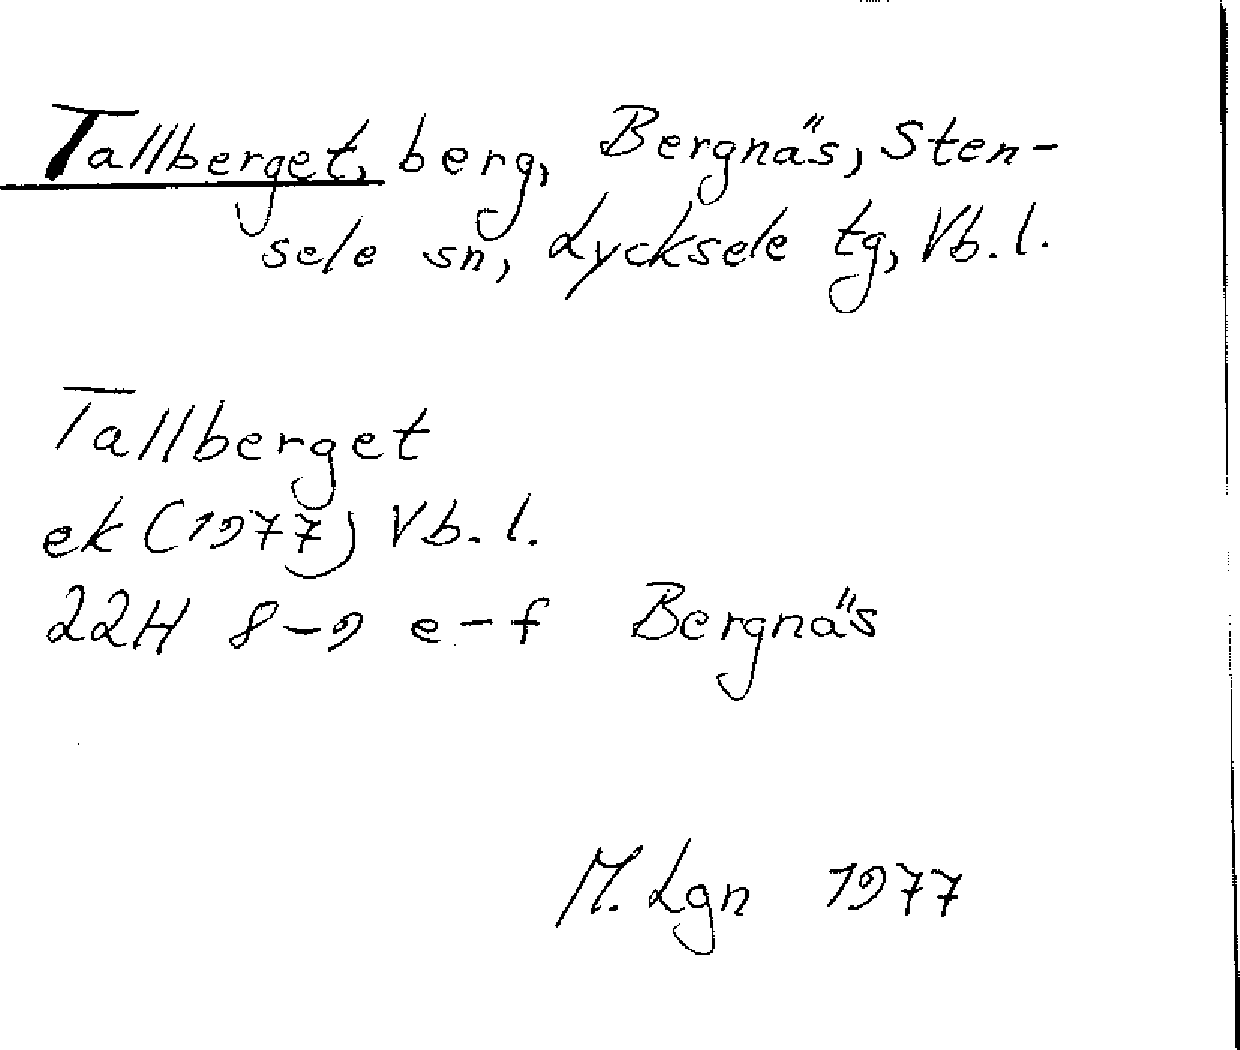 Tallberget, berg, Bergnäs, Sten-
sele sn, Lycksele tg, Vb. l.
Tallberget
ek (1977) Vb. l.
22H 8-9 e-f Bergnäs
M. Lgn 1977